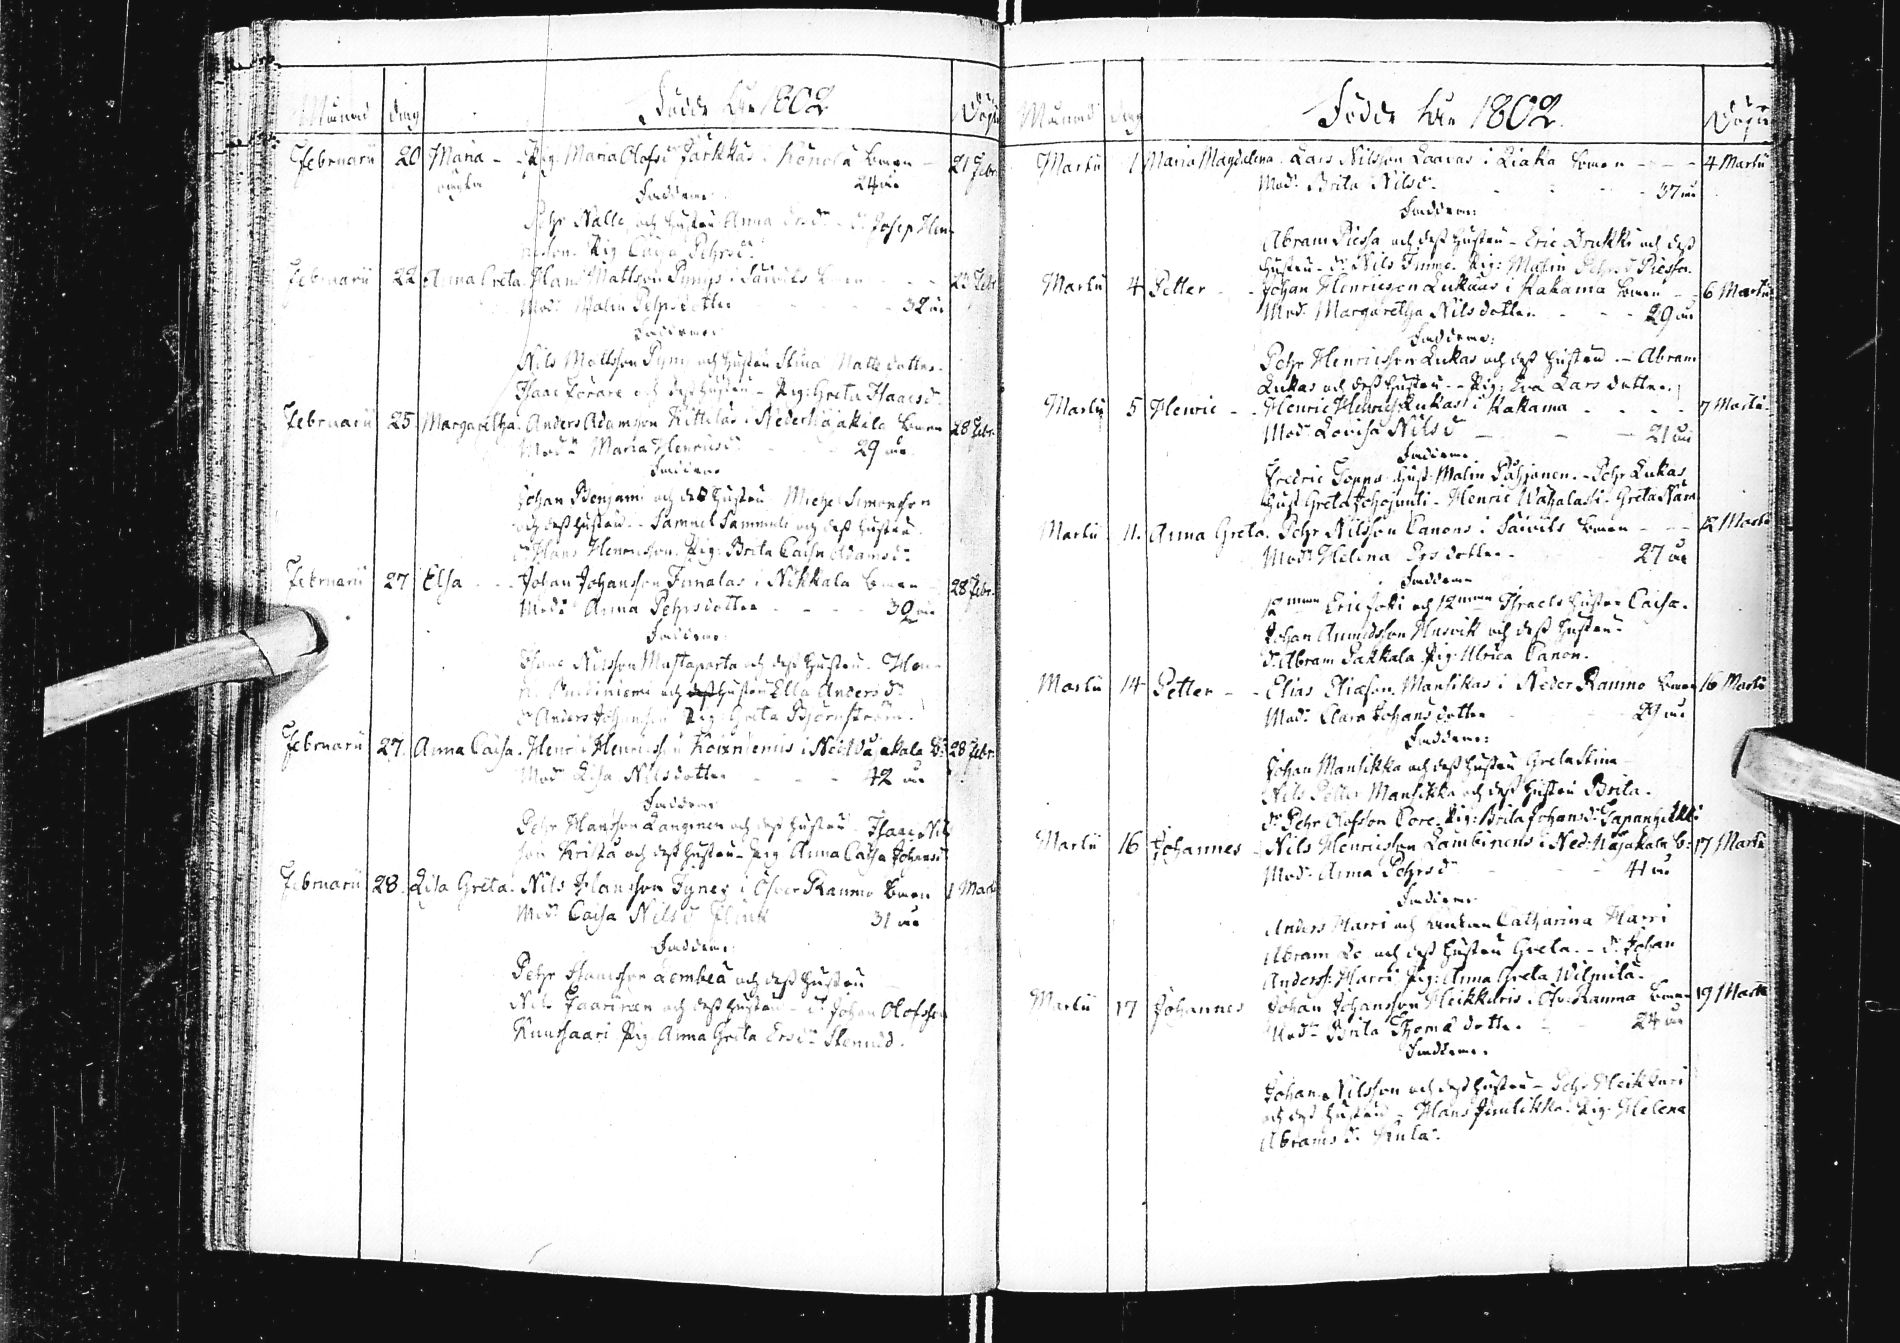 Månad dag Födde åhr 1802 Döpte
Februarii 20 Maria - Pig. Maria Olofsdr Jarkkas i Kunola barn - 21 Febr.
oägta 24 år
Faddern:
Pehr Nalle och hustru Anna - dr. Josep Hen-
ricson. Pig. Caisa Pehrsdr.
Februarii 22 Anna Greta. Hans Mattsson i Saivits barn 23 Febr
Modr. Malin Pehrsdotter 32 år
Faddern:
Nils Mattsson och hustru Stina Matts dotter.
Isaac och dess hustru - Pig: Greta Isaacsdr.
Februarii 25 Margaretha. Anders Adamsson Kittilas i Nedervojakala barn 28 Febr.
Modr. Maria Henricsdr 29 år
Faddern
Johan Benjami och dess hustru. Michel Simonsson
och dess hustru. - Samuel Sammeli och dess hustru.
dr. Hans Henricsson. Pig: Brita Caisa Adamsdr.
Februarii 27 Elsa - - Johan Johansson Funalas i Nikkala barn 28 Febr.
Modr. Anna Pehrsdotter - - - 32 år
Faddern:
Isaac Nilsson Mustaparta och dess hustru. Hen-
och dess hustru Ella Andersdr.
dr Anders Johansson Pig: Greta Björnström.
Februarii 27. Anna Caisa. Henric Henricsson Koivuniemis i Ned. Vojakala B: 28 Febr.
Modr. Lisa Nilsdotter - - - 42 år
Faddern
Pehr Hansson Langinen och dess hustru. Isaac Nils
son Krista och dess hustru - Pig. Anna Caisa Johansdr
Februarii 28. Lisa Greta. Nils Hansson Tynes i Öfver Raumo barn 1 Marti
Modr. Caisa Nilsdr Flink 31 år
Faddern:
Pehr Hansson Lemheä och dess hustru
Nils Jaarinen och dess hustru - dr Johan Olofsson
Kuusaari Pig. Anna Greta Ersdr Stenudd.
Månad dag Födde åhr 1802. Döpte
Martii 1 Maria Magdalena. Lars Nilsson Laavas i Liaka barn - - - 4 Martii
Modr. Brita Nilsdr. - - - 37 år
Faddern:
Abram Piessa och dess hustru - Eric Drukki och dess
hustru - dr. Nils Pig: Malin Pehrsd Piessa.
Martii 4 Petter - - Johan Henricsson Lukkas i Kakama barn - - 6 Martii
Modr. Margaretha Nilsdotter - - - 29 år
Faddern:
Pehr Henricsson Lukas och dess hustru. - Abram
Lukas och dess hustru. - - Pig: Eva Lars dotter.
Martii 5 Henric - - Henric Henricss. Lukas i Kakama - - - - 7 Martii.
Modr. Lovisa Nilsd - - - 21 år
Faddern
Fredric Soppa hust: Malin Puhjonen. - Pehr Lukas
hust Greta - Henric Wahalahti. Greta
Martii 11. Anna Greta. Pehr Nilsson Canons i Saivits barn - - - 12 Martii
Modr. Helena Ersdotter - 27 år
Faddern
12man Eric Joki och 12man Israels hustru Caisa.
Johan Anundsson Husvik och dess hustru -
dr. Abram Pakkala Pig: Ulrica Canon.
Martii 14 Petter - - Elias Eliasson Mansikas i Neder Raumo barn 16 Martii
Modr. Clara Johansdotter 29 år
Faddern:
Johan Mansikka och dess hustru Greta Stina -
Nils Petter Mansikka och dess hustru Brita.
dr. Pehr Olofsson Pore. Pig: Brita Johansdr
Martii 16 Johannes - Nils Henricsson Lambinens i Ned. Vojakala B: 17 Martii
Modr. Anna Pehrsdr - - - 41 år
Faddern
Anders Harri och enkan Catharina Harri
Abram Lo och dess hustru Greta. - dr. Johan
Anderss. Harri Pig: Anna Greta
Martii 17 Johannes Johan Johansson Heikkuris i Öfv. Raumo barn 19 Martii
Modr. Brita Thomædotter - 24 år
Faddern.
Johan Nilsson och dess hustru - Pehr Heikkuri
och dess hustru - Hans Pig: Helena
Abramsdr.